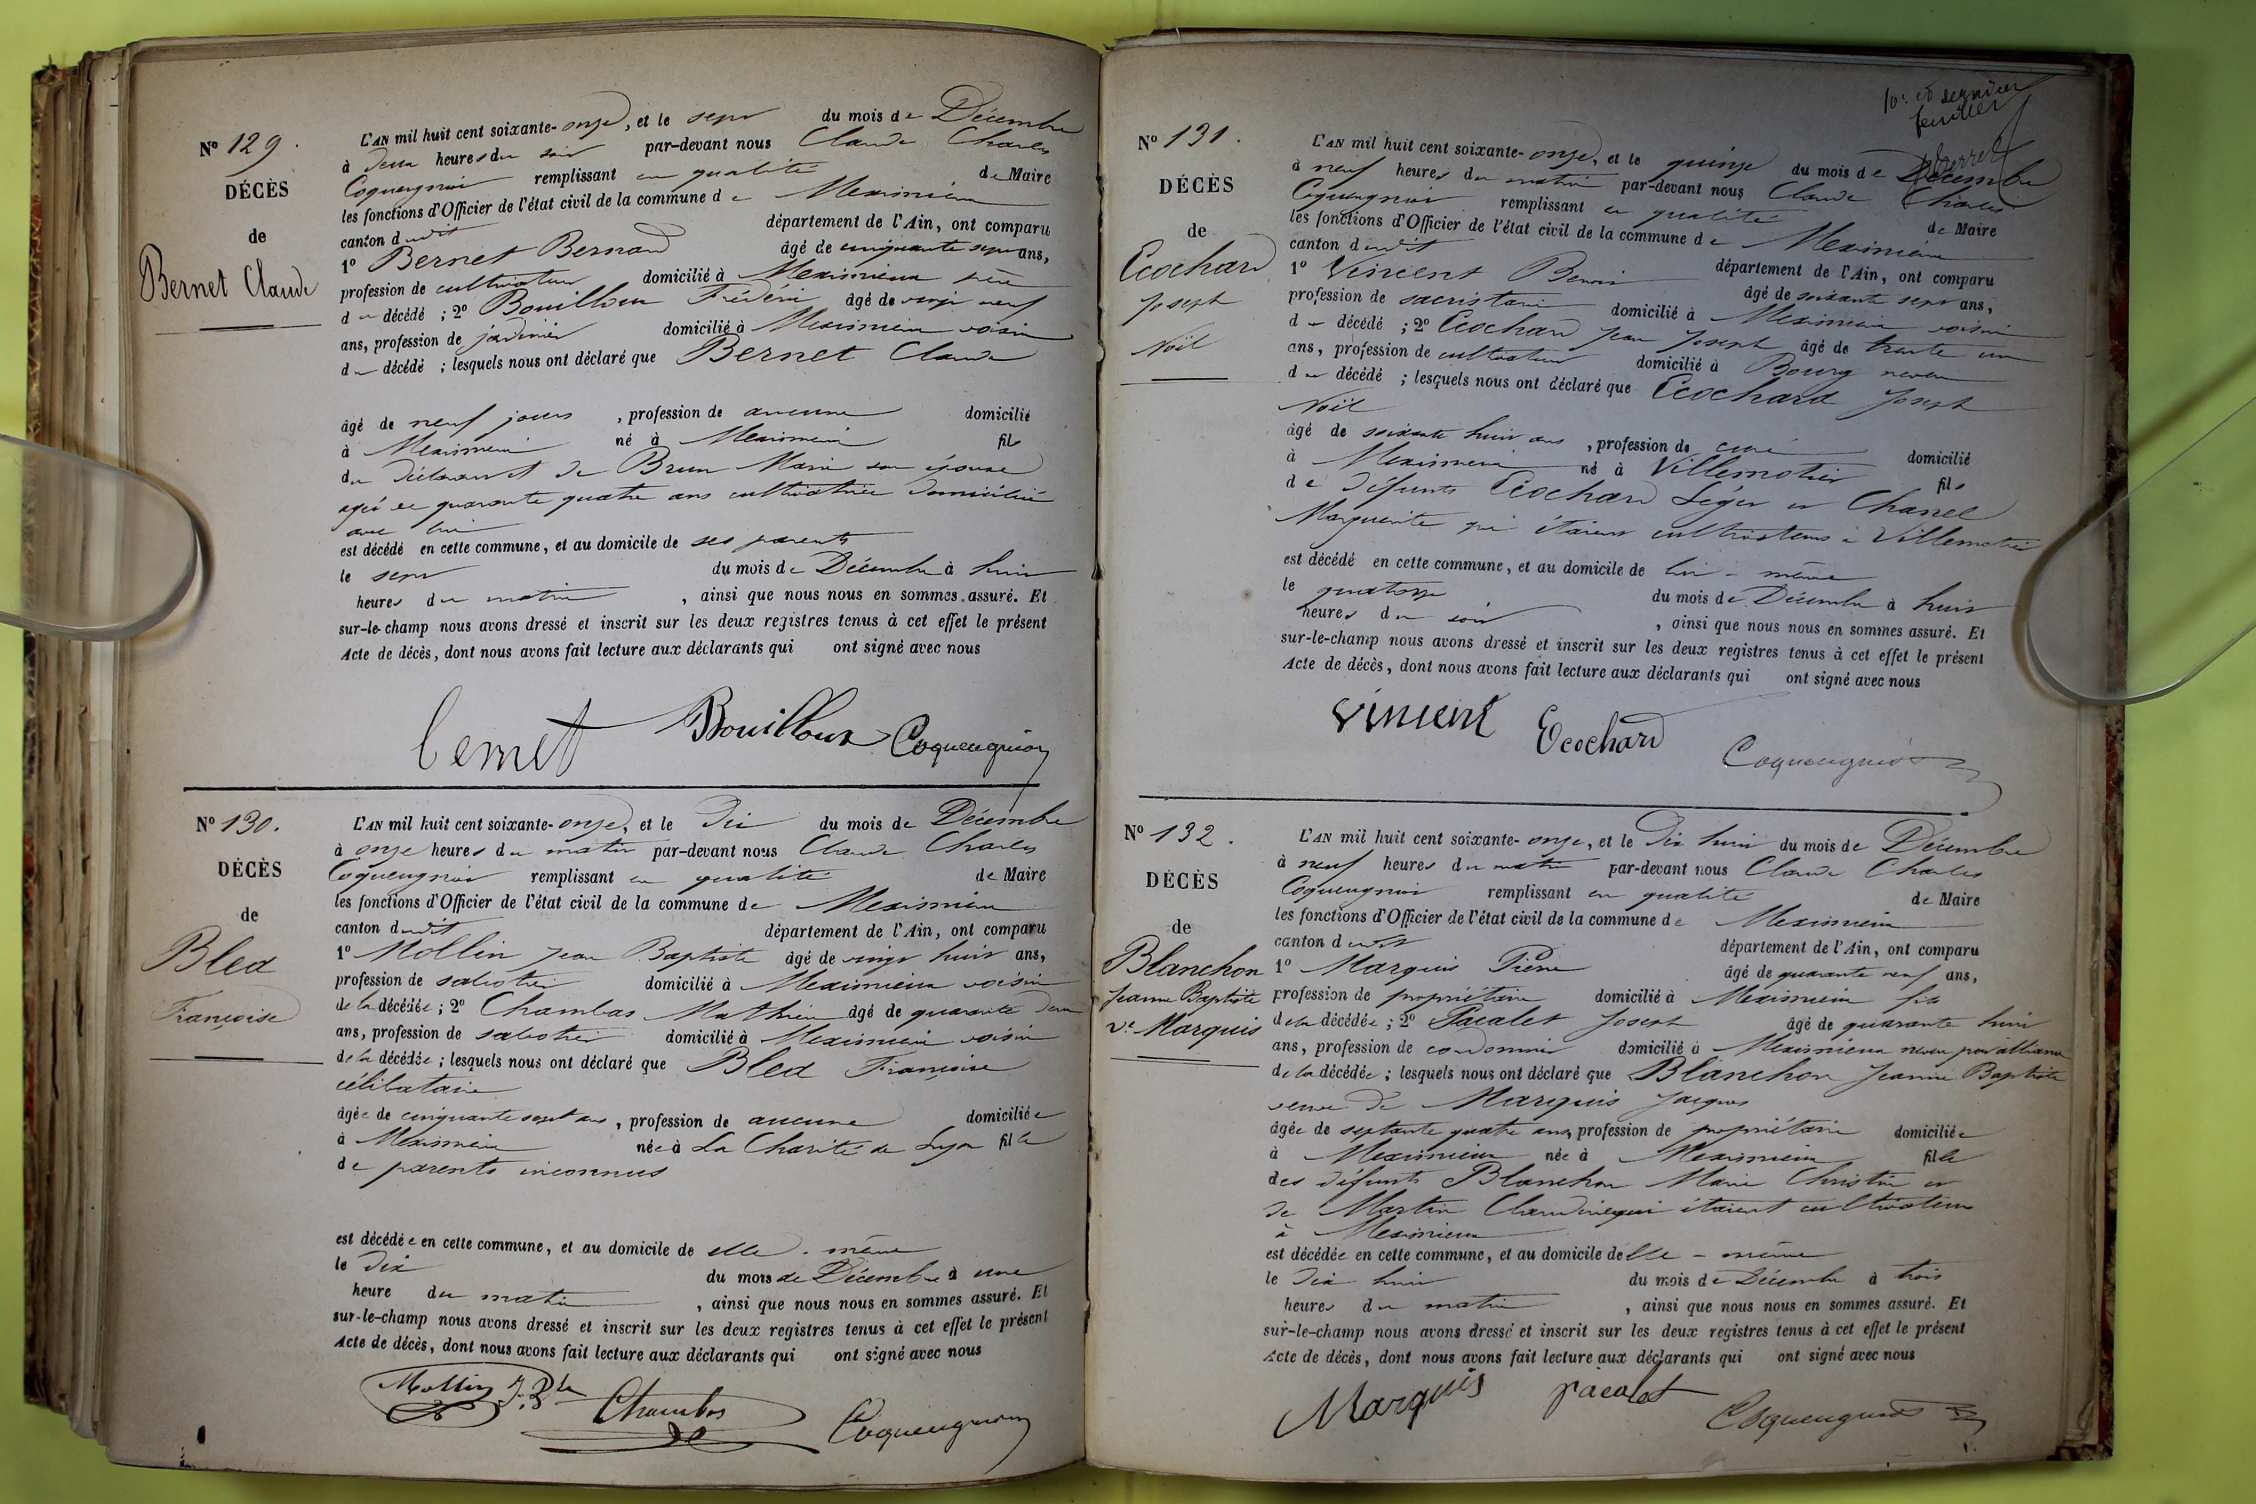 No 129.
DÉCÈS
de
Bernet Claude
L'AN mil huit cent soixante-onze, et le sept du mois de Décembre
à deux heures du soir par-devant nous Claude Charles
Coqueugniot remplissant en qualité de Maire
les fonctions d'Officier de l'état civil de la commune de Meximieux
canton dudit département de l'Ain, ont comparu
1o Bernet Bernard âgé de cinquante sept ans,
profession de cultivateur domicilié à Meximieux père
du décédé ; 2o Bouilloux Frédéric âgé de vingt neuf
ans, profession de jardinier domicilié à Meximieux voisin
du décédé ; lesquels nous ont déclaré que Bernet Claude
âgé de neuf jours , profession de aucune domicilié
à Meximieux né à Meximieux fils
du déclarant et de Brun Marie son épouse
agée de quarante quatre ans cultivatrice domiciliée
avec lui
est décédé en cette commune, et au domicile de ses parents
le sept du mois de Décembre à huit
heures du matin , ainsi que nous nous en sommes assuré. Et
sur-le-champ nous avons dressé et inscrit sur les deux registres tenus à cet effet le présent
Acte de décès, dont nous avons fait lecture aux déclarants qui ont signé avec nous
bernet Bouilloux Coqueugniot
No 130.
DÉCÈS
de
Bled
Françoise
L'AN mil huit cent soixante-onze, et le dix du mois de Décembre
à onze heures du matin par-devant nous Claude Charles
Coqueugniot remplissant en qualité de Maire
les fonctions d'Officier de l'état civil de la commune de Meximieux
canton dudit département de l'Ain, ont comparu
1o Mollin Jean Baptiste âgé de vingt huit ans,
profession de sabotier domicilié à Meximieux voisin
de la décédée ; 2o Chambas Mathieu âgé de quarante deux
ans, profession de sabotier domicilié à Meximieux voisin
de la décédée ; lesquels nous ont déclaré que Bled Françoise
célibataire
âgée de cinquante sept ans , profession de aucune domiciliée
à Meximieux née à La Charité de Lyon fille
de parents inconnus
est décédée en cette commune, et au domicile de elle-même
le dix du mois de Décembre à une
heure du matin , ainsi que nous nous en sommes assuré. Et
sur-le-champ nous avons dressé et inscrit sur les deux registres tenus à cet effet le présent
Acte de décès, dont nous avons fait lecture aux déclarants qui ont signé avec nous
Mollin J. Bte Chambas Coqueugniot
10e et dernier
feuillet
No 131.
DÉCÈS
de
Ecochard
Joseph
Noël
L'AN mil huit cent soixante-onze, et le quinze du mois de Décembre
à neuf heures du matin par-devant nous Claude Charles
Coqueugniot remplissant en qualité de Maire
les fonctions d'Officier de l'état civil de la commune de Meximieux
canton dudit département de l'Ain, ont comparu
1o Vincent Benoit âgé de soixante sept ans,
profession de sacristain domicilié à Meximieux voisin
du décédé ; 2o Ecochard Jean Joseph âgé de trente un
ans, profession de cultivateur domicilié à Bourg neveu
du décédé ; lesquels nous ont déclaré que Ecochard Joseph
Noël
âgé de soixante huit ans , profession de curé domicilié
à Meximieux né à Villemotier fils
de défunts Ecochard Léger et Chanel
Marguerite qui étaient cultivateurs à Villemotier
est décédé en cette commune, et au domicile de lui-même
le quatorze du mois de Décembre à huit
heures du soir , ainsi que nous nous en sommes assuré. Et
sur-le-champ nous avons dressé et inscrit sur les deux registres tenus à cet effet le présent
Acte de décès, dont nous avons fait lecture aux déclarants qui ont signé avec nous
Vincent Ecochard Coqueugniot
No 132.
DÉCÈS
de
Blanchon
Jeanne Baptiste
Ve Marquis
L'AN mil huit cent soixante-onze, et le dix huit du mois de Décembre
à neuf heures du matin par-devant nous Claude Charles
Coqueugniot remplissant en qualité de Maire
les fonctions d'Officier de l'état civil de la commune de Meximieux
canton dudit département de l'Ain, ont comparu
1o Marquis Pierre âgé de quarante neuf ans,
profession de propriétaire domicilié à Meximieux fils
de la décédée ; 2o Pacalet Joseph âgé de quarante huit
ans, profession de cordonnier domicilié à Meximieux neveu par alliance
de la décédée ; lesquels nous ont déclaré que Blanchon Jeanne Baptiste
veuve de Marquis Jacques
âgée de septante quatre ans, profession de propriétaire domiciliée
à Meximieux née à Meximieux fille
des défunts Blanchon Marie Christin et
de Martin Claudine qui étaient cultivateurs
à Meximieux
est décédée en cette commune, et au domicile d'elle-même
le dix huit du mois de Décembre à trois
heures du matin , ainsi que nous nous en sommes assuré. Et
sur-le-champ nous avons dressé et inscrit sur les deux registres tenus à cet effet le présent
Acte de décès, dont nous avons fait lecture aux déclarants qui ont signé avec nous
Marquis Pacalet Coqueugniot